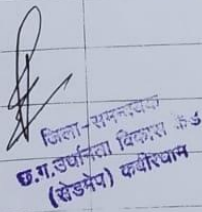 जिला-समन्वयक
छ.ग.उद्यमिता विकास केन्द्र
(सेडमेप) कबीरधाम